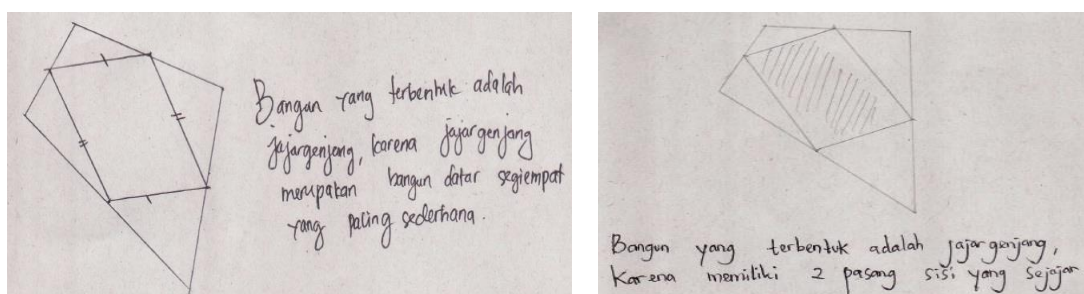 Bangun yang terbentuk adalah
jajargenjang, karena jajargenjang
merupakan bangun datar segiempat
yang paling sederhana.
Bangun yang terbentuk adalah jajargenjang,
Karena memiliki 2 pasang sisi yang sejajar